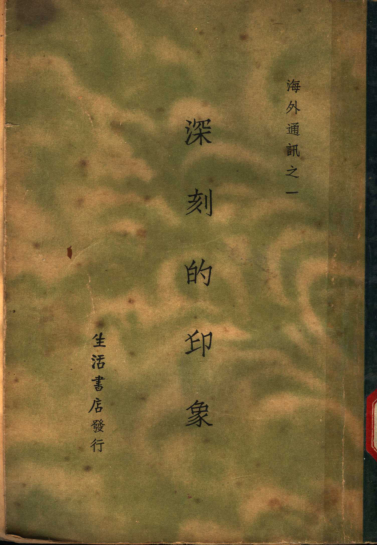 海外通訊之一
深刻的印象
生活書店發行